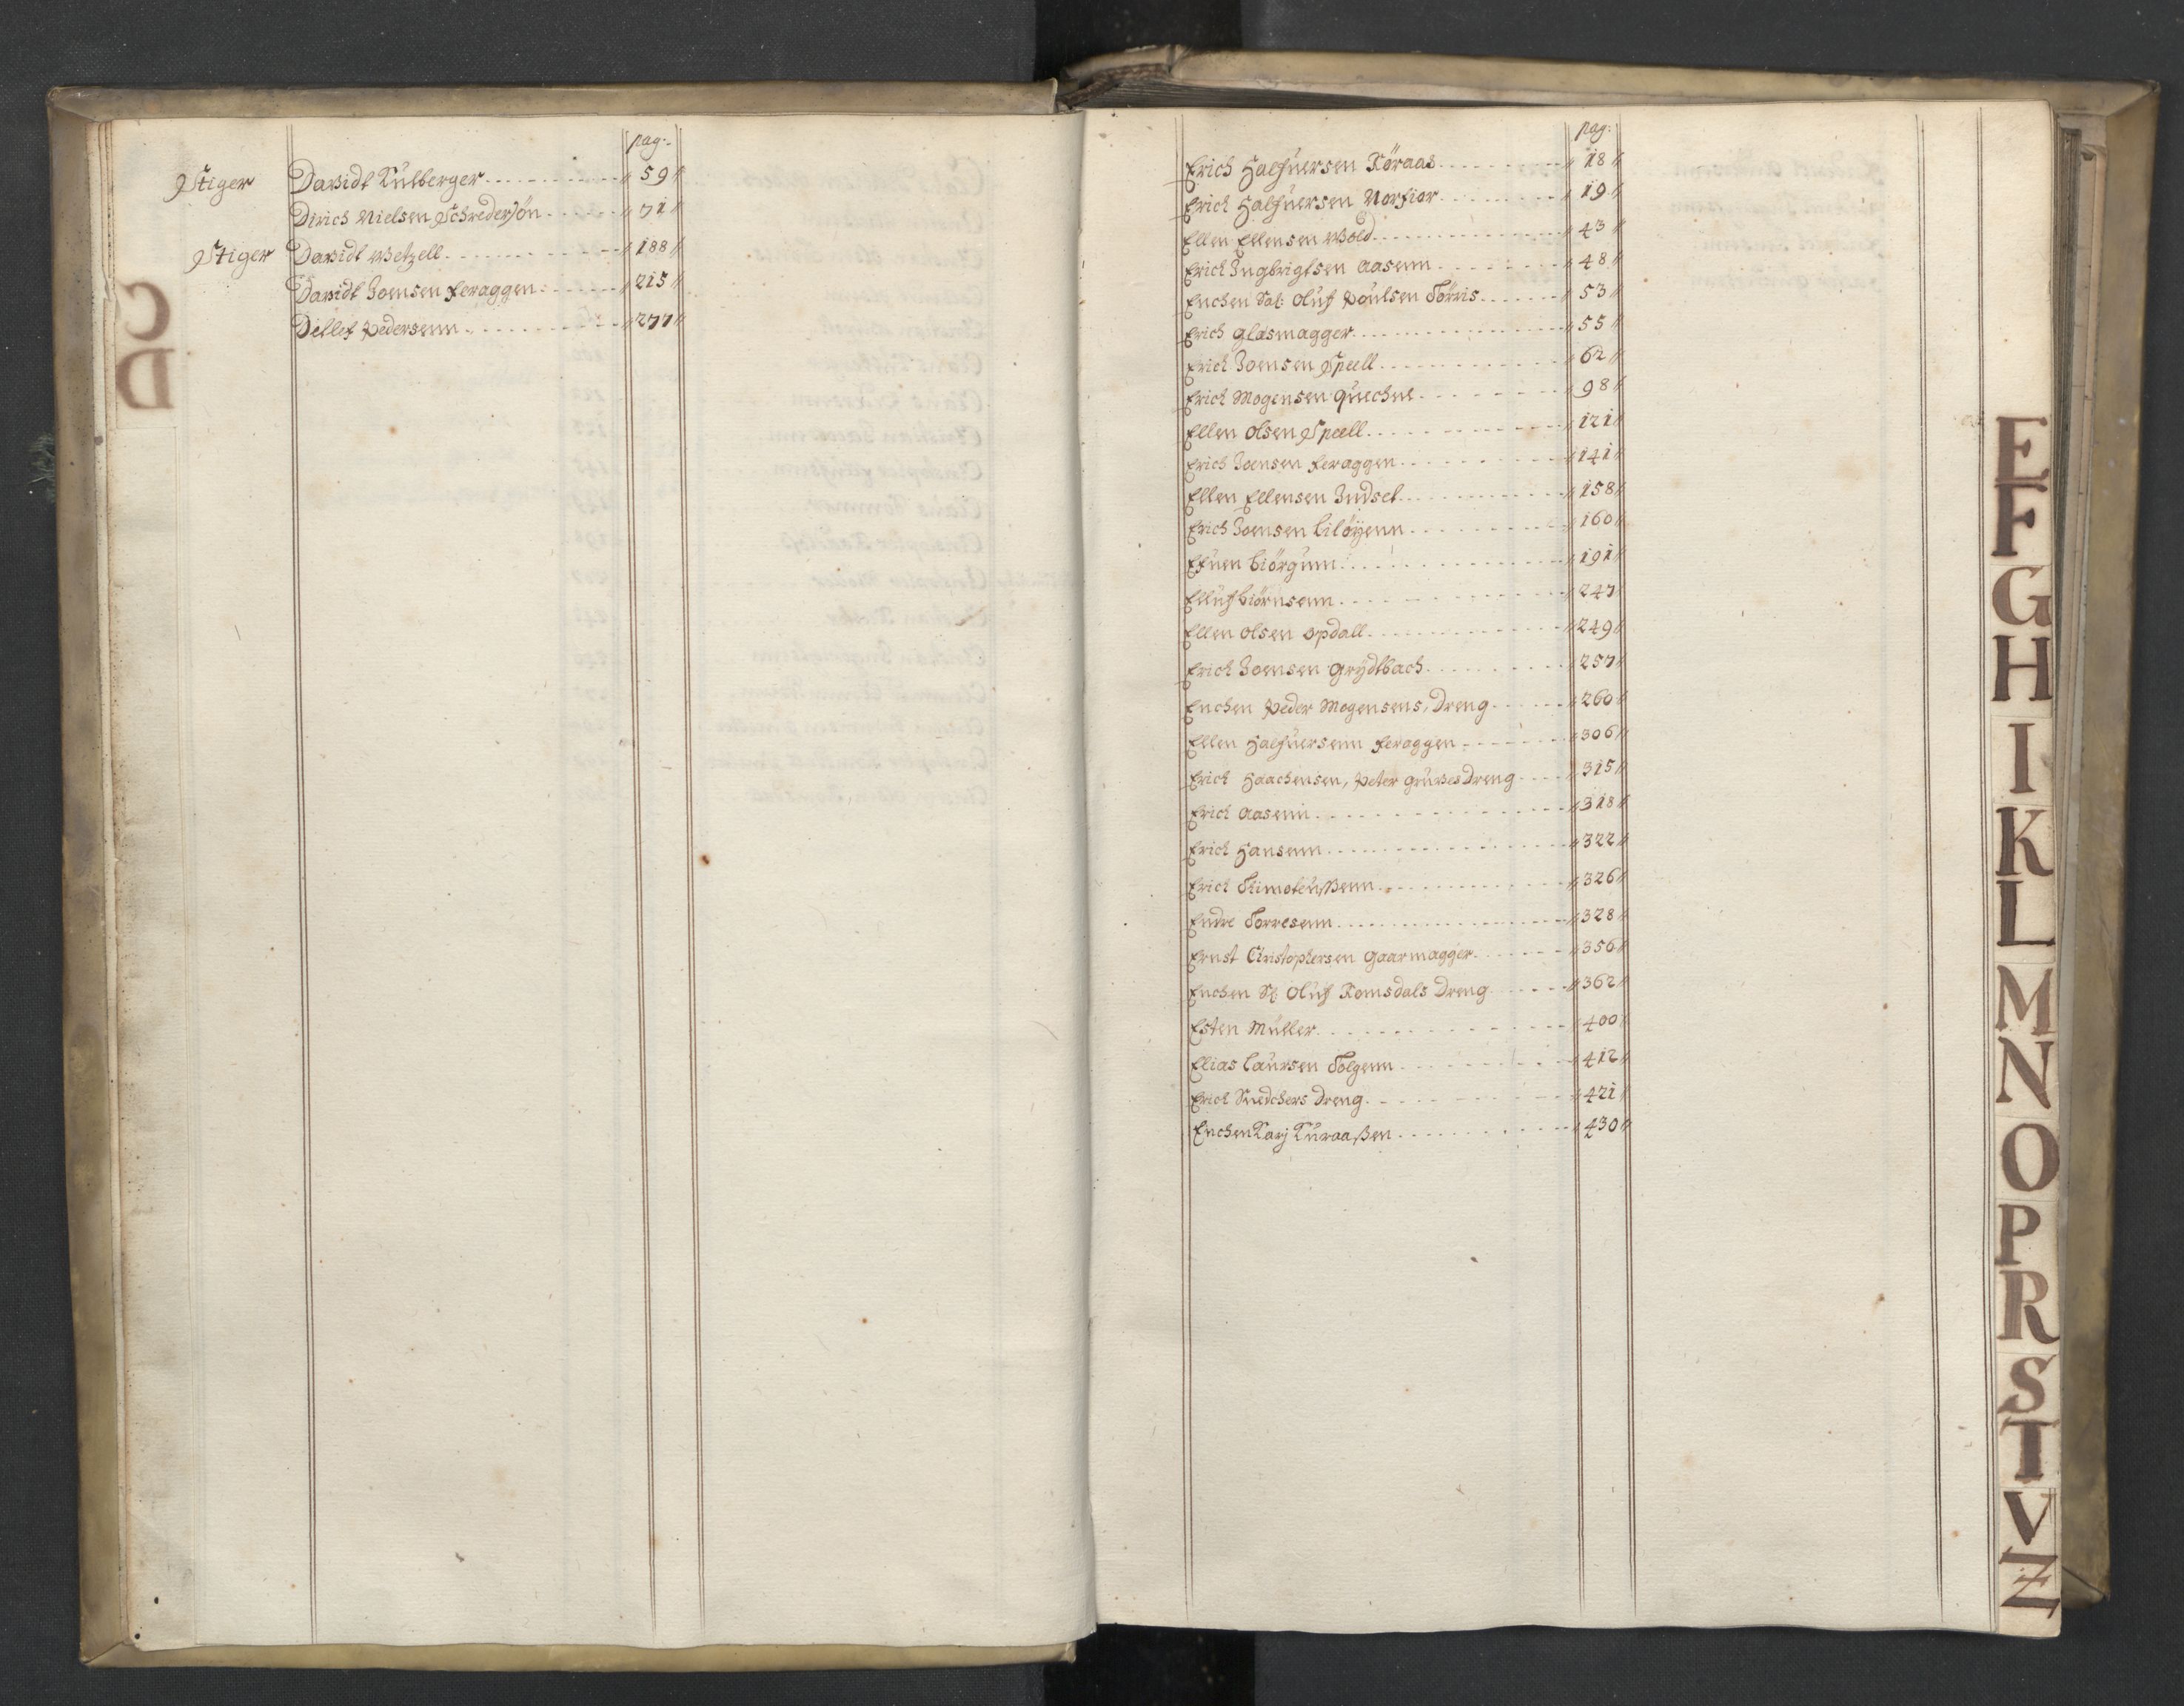 pag:
Stiger Davidt Külberger 59
Dirich Nielsen Schredersön 71
Stiger Davidt Wetzell 188
Davidt Joensen Feraggen 215
Detlef Pedersenn 277
C
D
pag:
Erich Halfuersen Röraas 18
Erich Halfuersen Norfior 19
Ellen Ellensen Wold 43
Erich Ingbrigtsen Aasenn 48
Enchen Sal: Oluf Poulsen Törris 53
Erich Glasmagger 55
Erich Joensen Speell 62
Erich Mogensen Quechne 98
Ellen Olsen Speell 121
Erich Joensen Feraggen 141
Ellen Ellensen Indset 158
Erich Joensen Liløyenn 160
Efuen Biörgum 191
Elluf Biörnsenn 247
Ellen Olsen Opdall 249
Erich Joensen Grydtbach 257
Enchen Peder Mogensens, Dreng 260
Ellen Halfuersenn Feraggen 306
Erich Haachensen, Peter Gruves Dreng 315
Erich Aasenn 318
Erich Hansenn 322
Erich Thimoteußenn 326
Endre Torresenn 328
Ernst Christophersen Gaarmagger 356
Enchen Sl: Oluf Romsdals Dreng 362
Esten Müller 400
Elias Laursen Tolgenn 412
Erich Snedchers Dreng 421
Enchen Karj Kuraaßen 430
E
F
G
H
I
K
L
M
N
O
P
R
S
T
V
Z